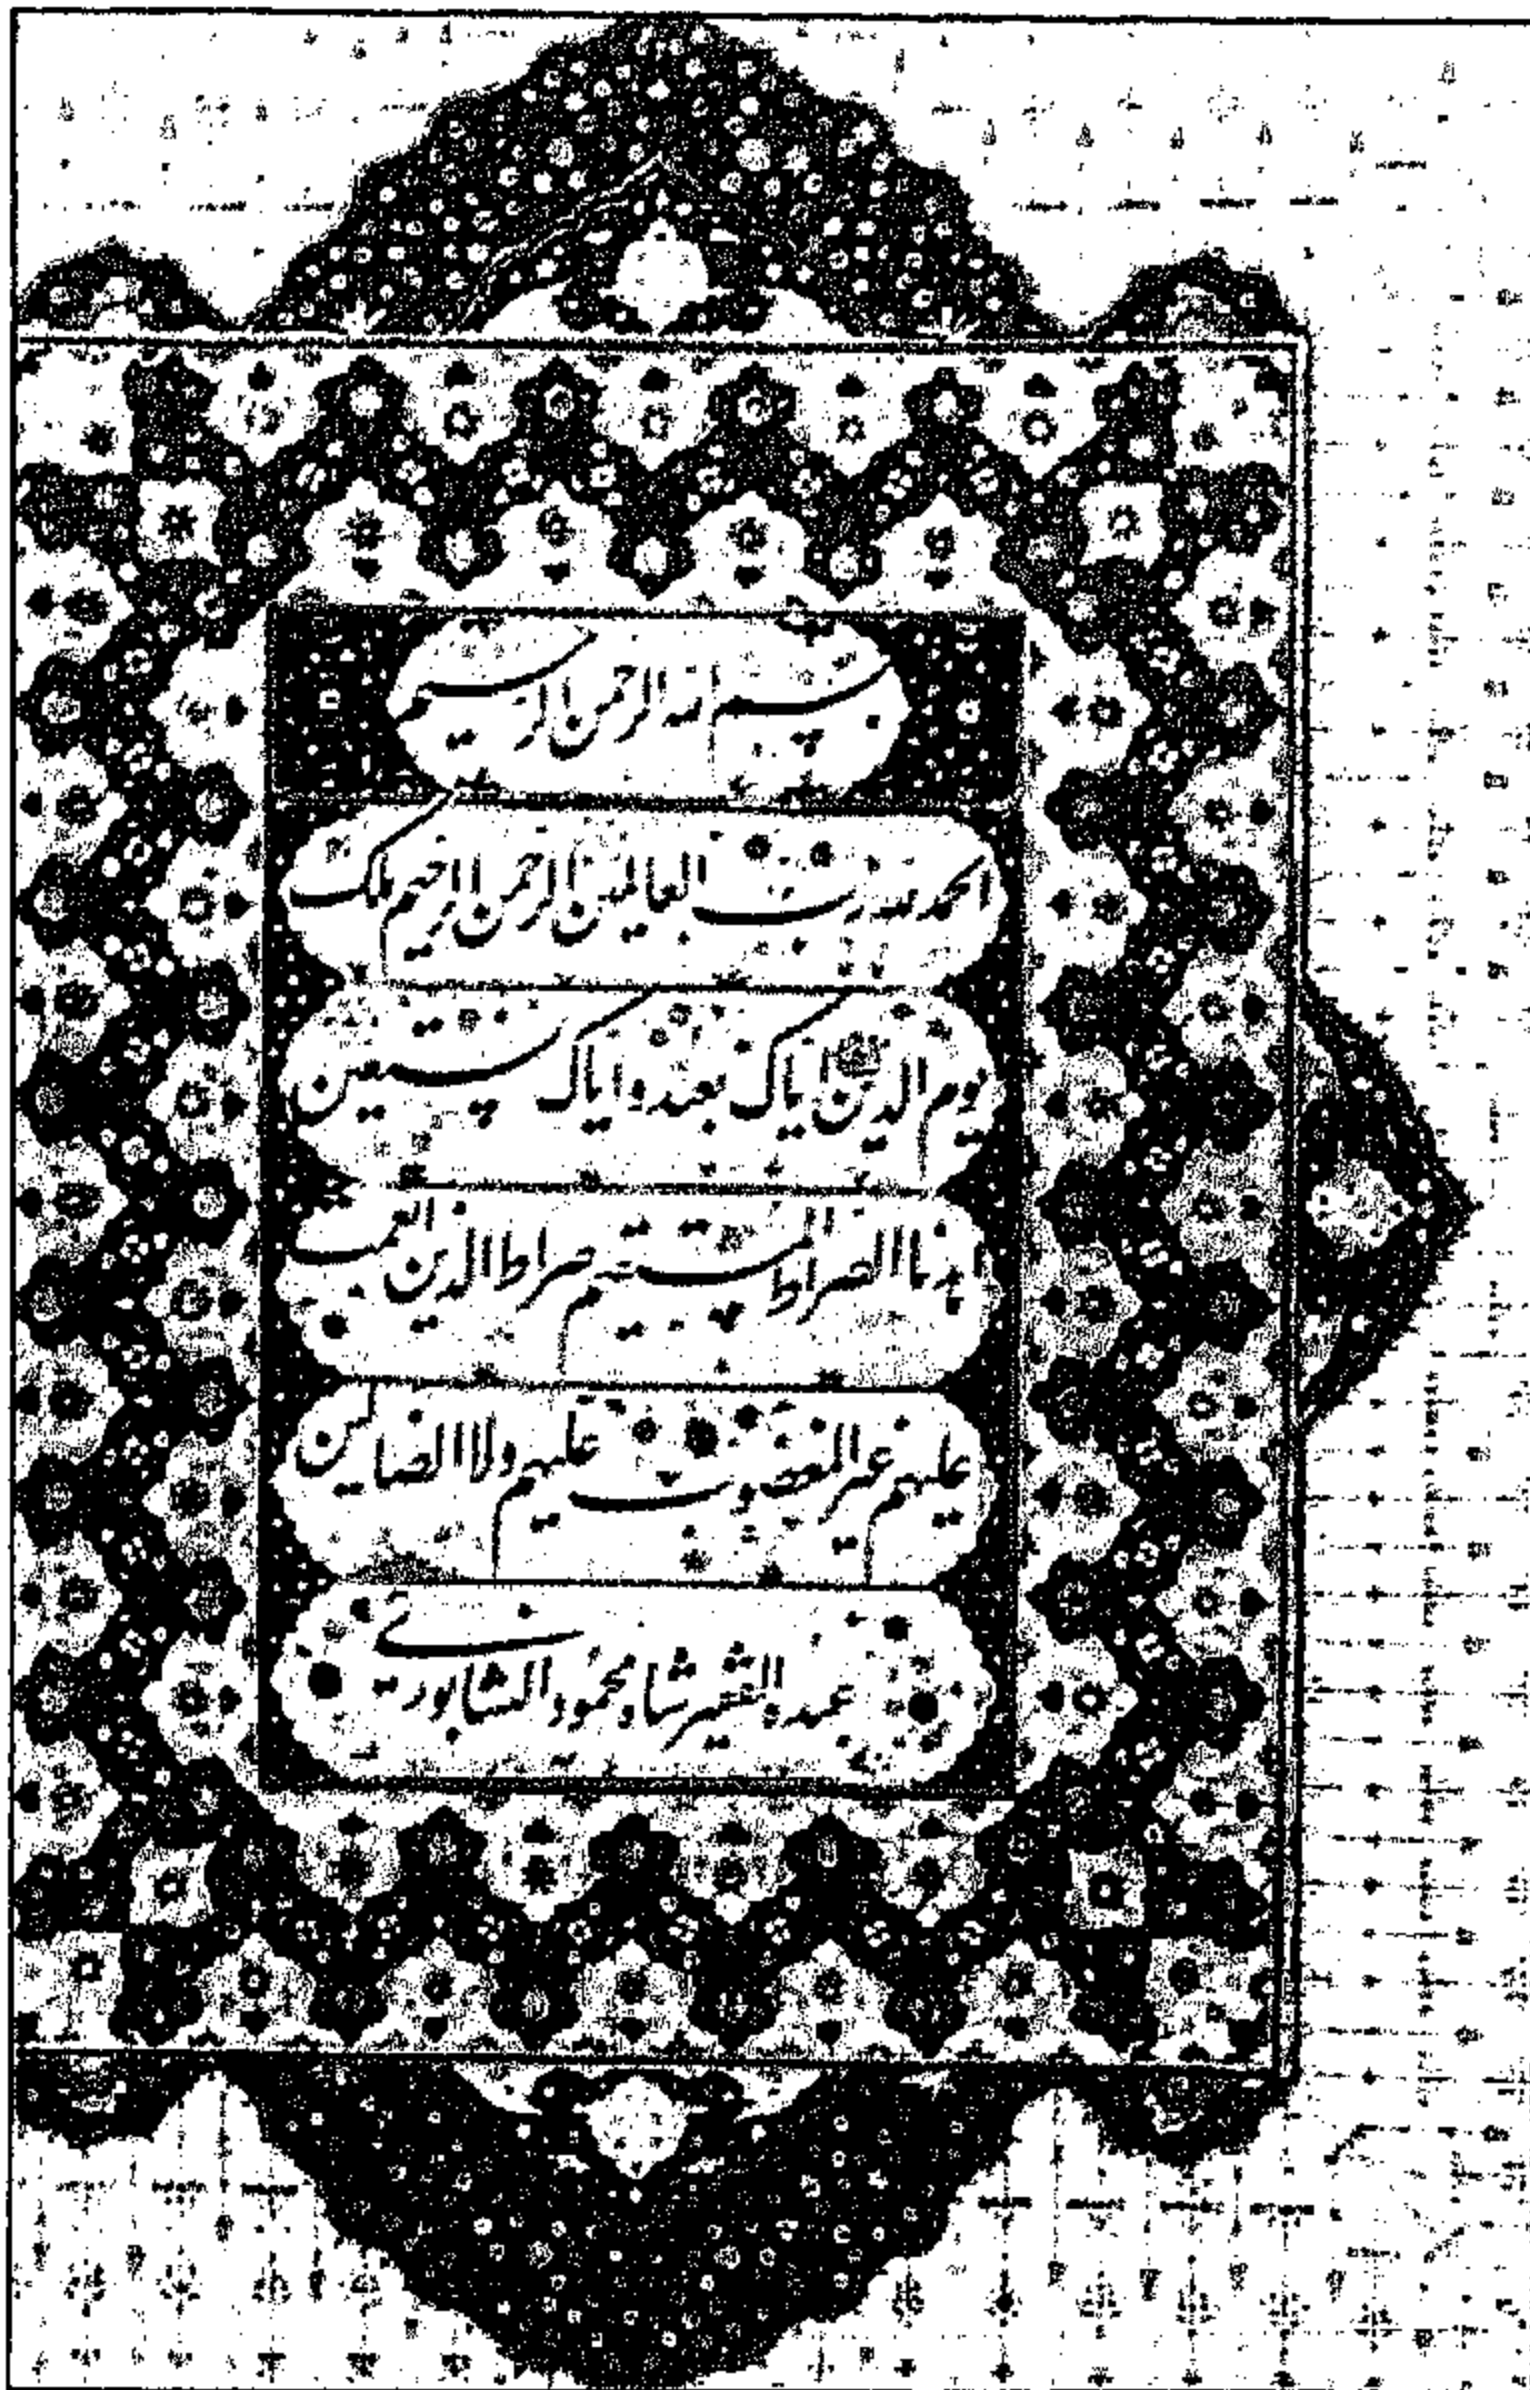 بسم الله الرحمن الرحيم
الحمد لله رب العالمين الرحمن الرحيم ملك
يوم الدين اياك نعبد و اياك نستعين
اهدنا الصراط المستقيم صراط الذين انعمت
عليهم غير المغضوب عليهم ولا الضالين
شاه محمود النيشابوري